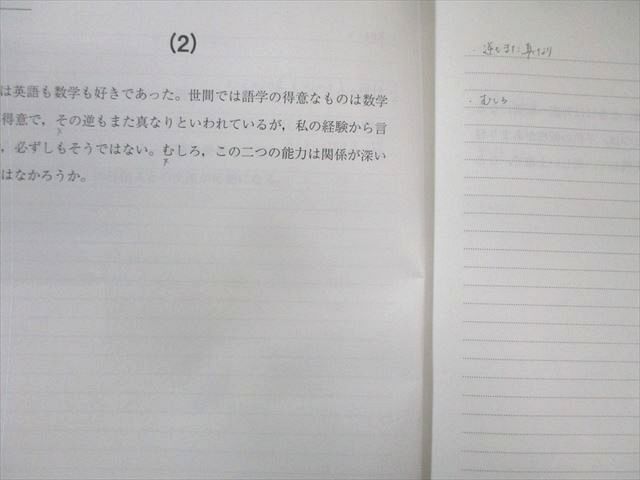 (2)
は英語も数学も好きであった。世間では語学の得意なものは数学
得意で，その逆もまた真なりといわれているが，私の経験から言
，必ずしもそうではない。むしろ，この二つの能力は関係が深い
はなかろうか。
・逆もまた真なり
・むしろ